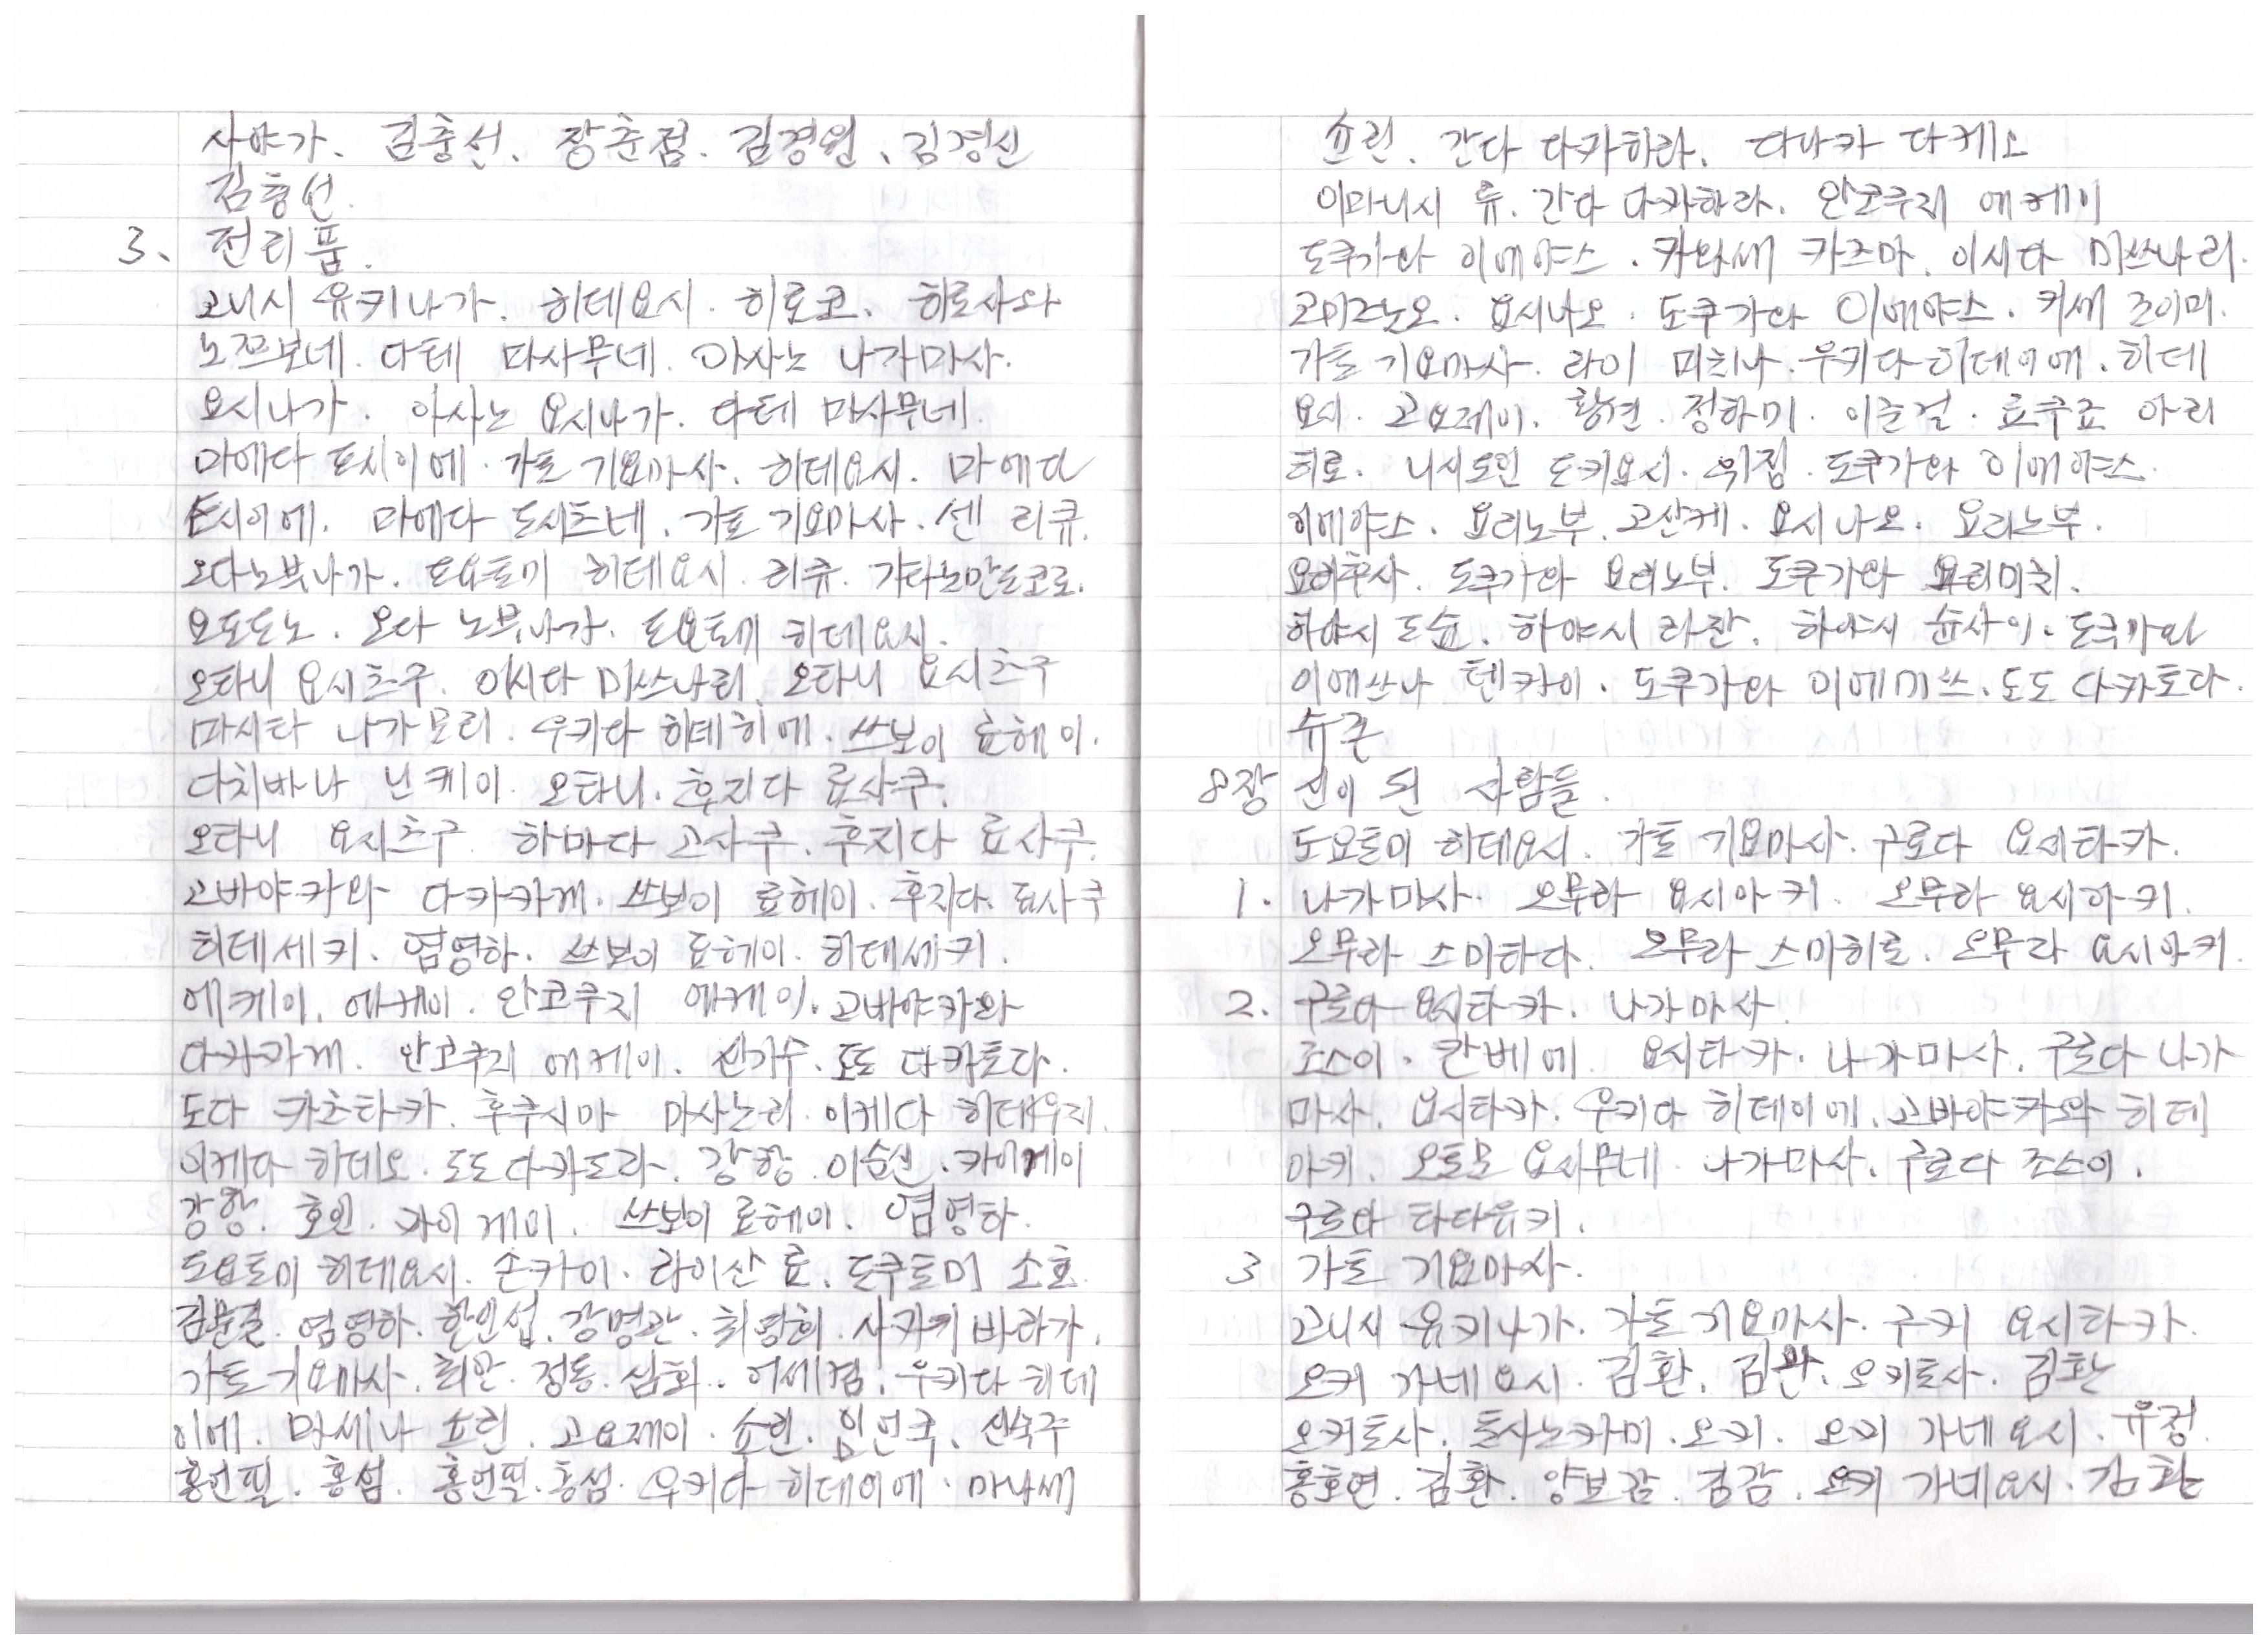 사야가. 김충선. 장춘점. 김경원. 김경신
김충선.
3. 전리품.
고니시 유키나가. 히데요시. 히로코. 히로사와
노쯔보네. 다테 마사무네. 아사노 나가마사.
요시나가. 아사노 요시나가. 다테 마사무네.
마에다 토시이에. 가토 기요마사. 히데요시. 마에다
토시이에. 마에다 도시츠네. 가토 기요마사. 센 리큐.
오다노부나가. 도요토미 히데요시. 리큐. 기타노만도코로.
요도도노. 오다 노부나가. 도요토미 히데요시.
오타니 요시츠구. 이시다 미쓰나리. 오타니 요시츠구
마시타 나가모리. 우키다 히데히에. 쓰보이 료헤이.
다치바나 난케이. 오타니. 후지다 료사쿠.
오타니 요시츠구 하마다 고사쿠. 후지다 료사쿠.
고바야카와 다카카게. 쓰보이 료헤이. 후지다. 료사쿠
히데세키. 염영하. 쓰보이 료헤이. 히데세키.
에케이. 에케이. 안코쿠지 에케이. 고바야카와
다카카게. 안코쿠지 에케이. 신기수. 도도 다카토다.
도다 카츠타카. 후쿠시마 마사노리. 이케다 히데우지.
이케다 히데오. 도도다카도라. 강항. 이순신. 카이케이
강항. 호인. 카이케이. 쓰보이 료헤이. 염영하.
도요토미 히데요시. 손카이. 라이산 료. 도쿠토미 소호
김문길. 염영하. 한인섭. 강명관. 최광희. 사카키바라가.
가토 기요마사. 최안. 정동. 심회. 어세겸. 우키다 히데
이에. 마세나 쇼린. 고요제이. 쇼린. 임언국. 신숙주
홍언필. 홍섬. 홍언필. 홍섬. 우키다 히데이에. 마나세
쇼린. 간다 다카히라. 다나카 다케오
이마니시 류. 간다 다카하라. 안코쿠지 에케이
도쿠가와 이에야스. 카와세 카즈마. 이시다 미쓰나리.
고미즈노오. 요시나오. 도쿠가와 이에야스. 키세 즈이미.
가토 기요마사. 라이 미치나. 우키다 히데이에. 히데
요시. 고요제이. 황견. 정하미. 이준걸. 료쿠죠 아리
히로. 니시도인 도키요시. 위징. 도쿠가와 이에야스.
이에야스. 요리노부. 고산케. 요시나오. 요리노부.
요리후사. 도쿠가와 요리노부. 도쿠가와 요리미치.
하야시 도슌. 하야시 라잔. 하야시 슌사이. 도쿠가와
이에쓰나 텐카이. 도쿠가와 이에미쓰. 도도 다카토다.
슈큰
8장 신이 된 사람들.
도요토미 히데요시. 가토 기요마사. 구로다 요시타카.
1. 나가마사. 오무라 요시아키. 오무라 요시아키.
오무라 스미타다. 오무라 스미히로. 오무라 요시아키.
2. 구로다 요시타카. 나가마사.
죠스이. 칸베에. 요시타카. 나가마사. 구로다 나가
마사. 요시타카. 우키다 히데이에. 고바야카와 히데
아키. 오토모 요시무네. 나가마사. 구로다 죠스이.
구로다 타다유키.
3 가토 기요마사.
고니시 유키나가. 가토 기요마사. 구키 요시타카.
오키 가네요시. 김환. 김환. 오키토사. 김환
오키토사. 토사노카미. 오키. 오키 가네요시. 유정.
홍호연. 김환. 양보감. 김감. 오키 가네요시. 김환